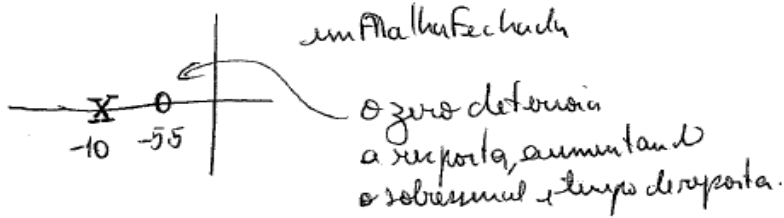 em Malha Fechada
o zero deteriora
a resposta, aumentando
o sobressinal e tempo de resposta.
X
-10 -5.5